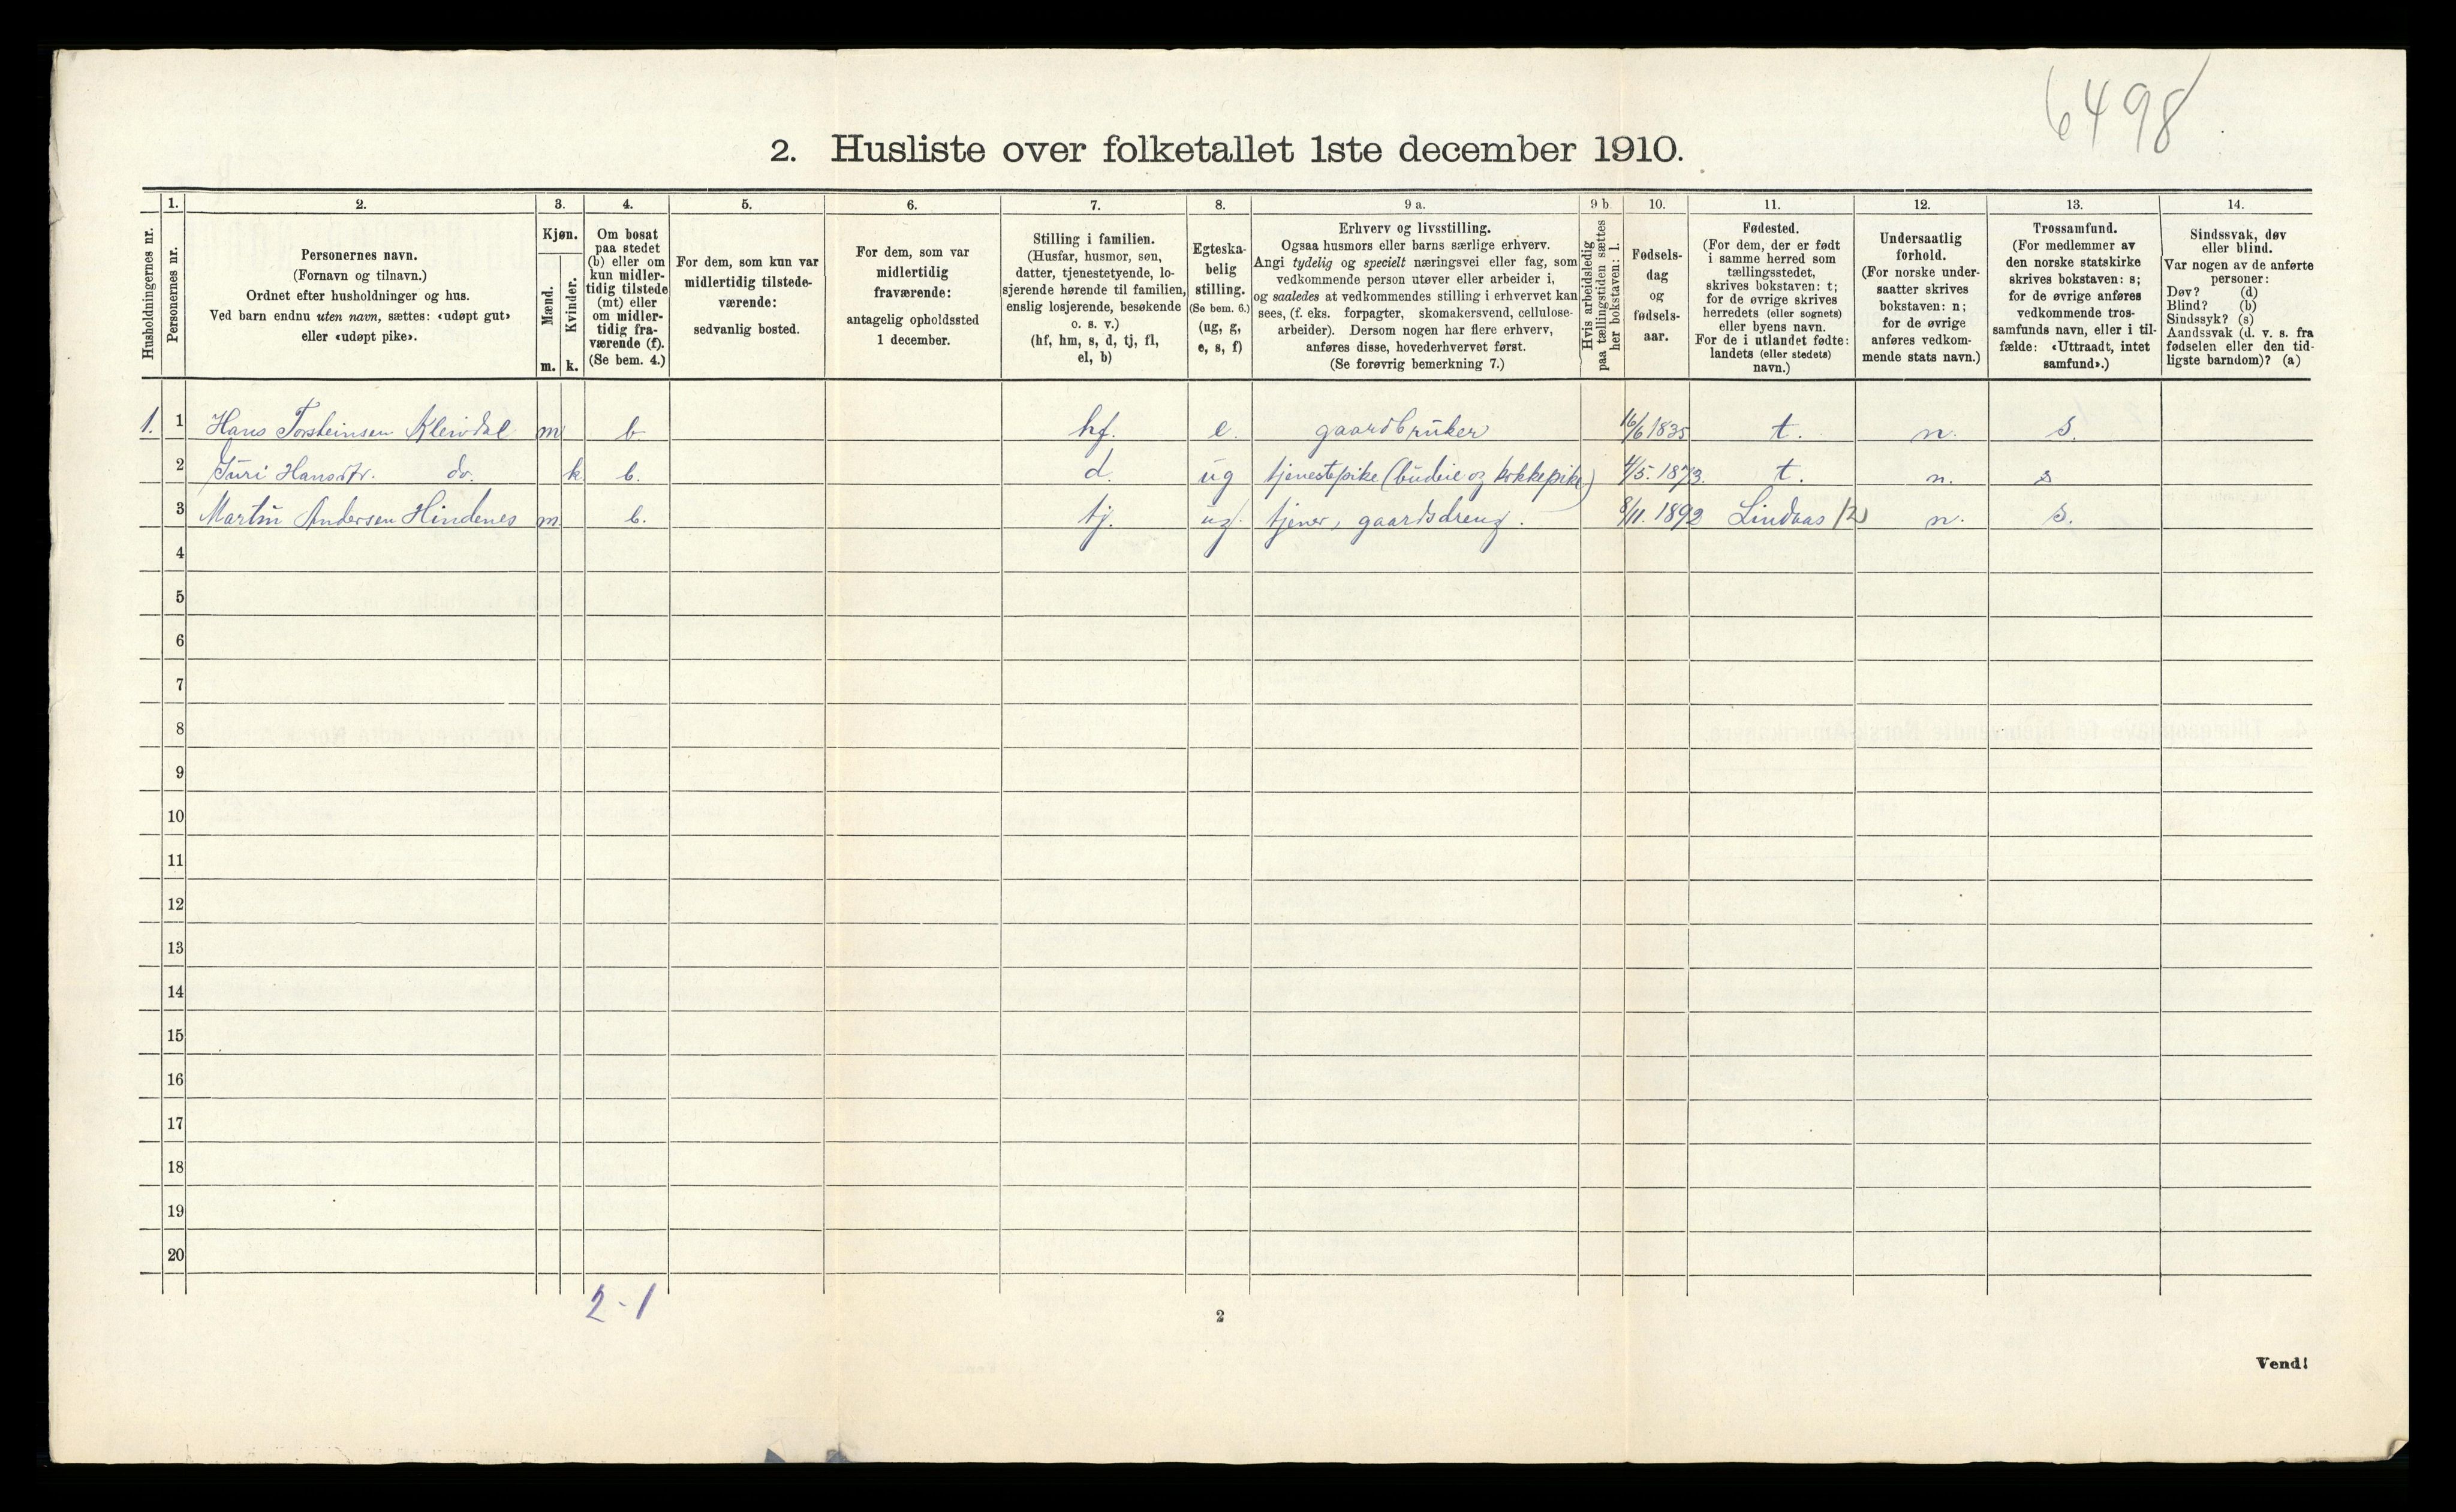 6498
2. Husliste over folketallet 1ste december 1910.
Husholdningernes nr.
1.
Personernes nr.
2.
Personernes navn.
(Fornavn og tilnavn.)
Ordnet efter husholdninger og hus.
Ved barn endnu uten navn, sættes: «udøpt gut»
eller «udøpt pike».
3.
Kjøn.
Mænd.
m.
Kvinder.
k.
4.
Om bosat
paa stedet
(b) eller om
kun midler-
tidig tilstede
(mt) eller
om midler-
tidig fra-
værende (f).
(Se bem. 4.)
5.
For dem, som kun var
midlertidig tilstede-
værende:
sedvanlig bosted.
6.
For dem, som var
midlertidig
fraværende:
antagelig opholdssted
1 december.
7.
Stilling i familien.
(Husfar, husmor, søn,
datter, tjenestetyende, lo-
sjerende hørende til familien,
enslig losjerende, besøkende
o. s. v.)
(hf, hm, s, d, tj, fl,
el, b)
8.
Egteska-
belig
stilling.
(Se bem. 6.)
(ug, g,
e, s, f)
9 a.
Erhverv og livsstilling.
Ogsaa husmors eller barns særlige erhverv.
Angi tydelig og specielt næringsvei eller fag, som
vedkommende person utøver eller arbeider i,
og saaledes at vedkommendes stilling i erhvervet kan
sees, (f. eks. forpagter, skomakersvend, cellulose-
arbeider). Dersom nogen har flere erhverv,
anføres disse, hovederhvervet først.
(Se forøvrig bemerkning 7.)
9 b.
Hvis arbeidsledig
paa tællingstiden sættes
her bokstaven: l.
10.
Fødsels-
dag
og
fødsels-
aar.
11.
Fødested.
(For dem, der er født
i samme herred som
tællingsstedet,
skrives bokstaven: t;
for de øvrige skrives
herredets (eller sognets)
eller byens navn.
For de i utlandet fødte:
landets (eller stedets)
navn.)
12.
Undersaatlig
forhold.
(For norske under-
saatter skrives
bokstaven: n;
for de øvrige
anføres vedkom-
mende stats navn.)
13.
Trossamfund.
(For medlemmer av
den norske statskirke
skrives bokstaven: s;
for de øvrige anføres
vedkommende tros-
samfunds navn, eller i til-
fælde: «Uttraadt, intet
samfund».)
14.
Sindssvak, døv
eller blind.
Var nogen av de anførte
personer:
Døv? (d)
Blind? (b)
Sindssyk? (s)
Aandssvak (d. v. s. fra
fødselen eller den tid-
ligste barndom)? (a)
1. 1 Hans Torsteinsen Kleivdal m b hf. e. gaardbruker 16/6 1835 t. n. s.
2 Guri Hansdtr. do. k b. d. ug tjenestepike (budeie og kokkepike) 4/5. 1873. t. n. s
3 Martin Andersen Hindenes m b. tj. ug. tjener, gaardsdreng. 8/11. 1892 Lindaas 12 n. s.
4
5
6
7
8
9
10
11
12
13
14
15
16
17
18
19
20
2-1
2
Vend!